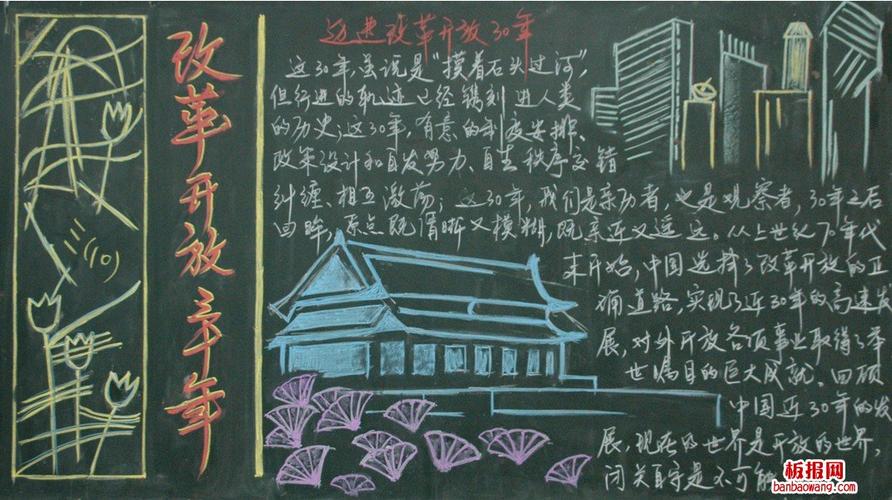 改革开放三十年
迈进改革开放30年
这30年,虽说是“摸着石头过河”,
但行进的轨迹已经镌刻进人类
的历史;这30年,有意的制度安排、
政策设计和自发努力、自生秩序交错
纠缠、相互激荡;这30年,我们是亲历者,也是观察者,30年之后
回眸,原点既清晰又模糊,既亲近又遥远。从上世纪70年代
末开始,中国选择了改革开放的正
确道路,实现了近30年的高速发
展,对外开放各项事业取得了举
世瞩目的巨大成就。回顾
中国近30年的发
展,现在的世界是开放的世界,
闭关自守是不可能
板报网
banbaowang.com